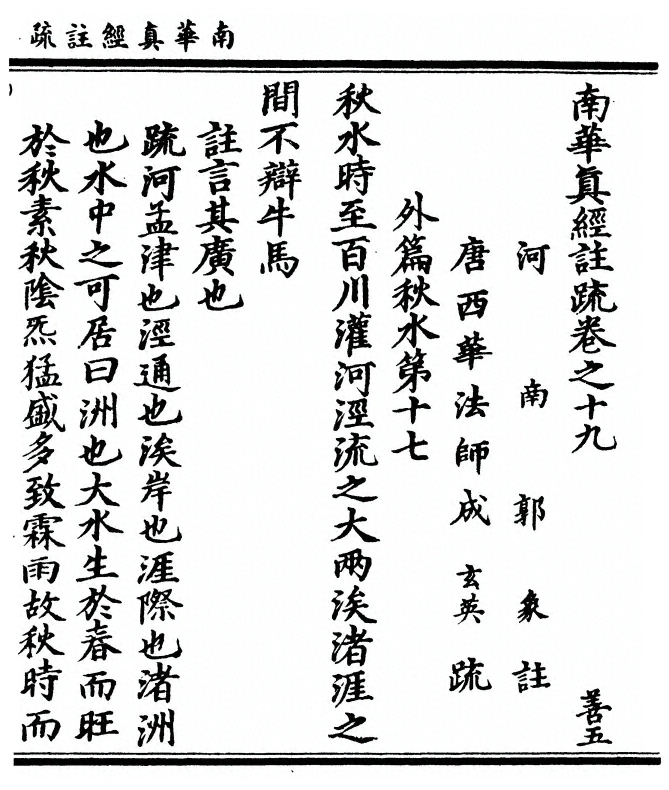 南華真經註疏
南華眞經註疏卷之十九 善五
河南郭象註
唐西華法師成玄英疏
外篇秋水第十七
秋水時至百川灌河涇流之大兩涘渚涯之
間不辯牛馬
註言其廣也
疏河孟津也涇通也涘岸也涯際也渚洲
也水中之可居曰洲也大水生於春而旺
於秋素秋隂炁猛盛多致霖雨故秋時而